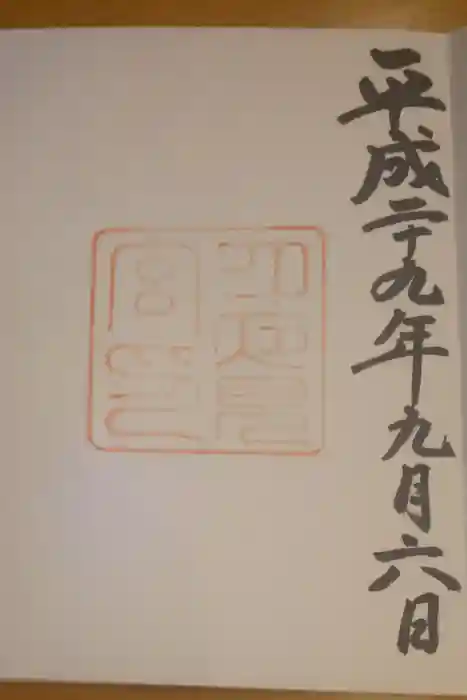 平成二十九年九月六日